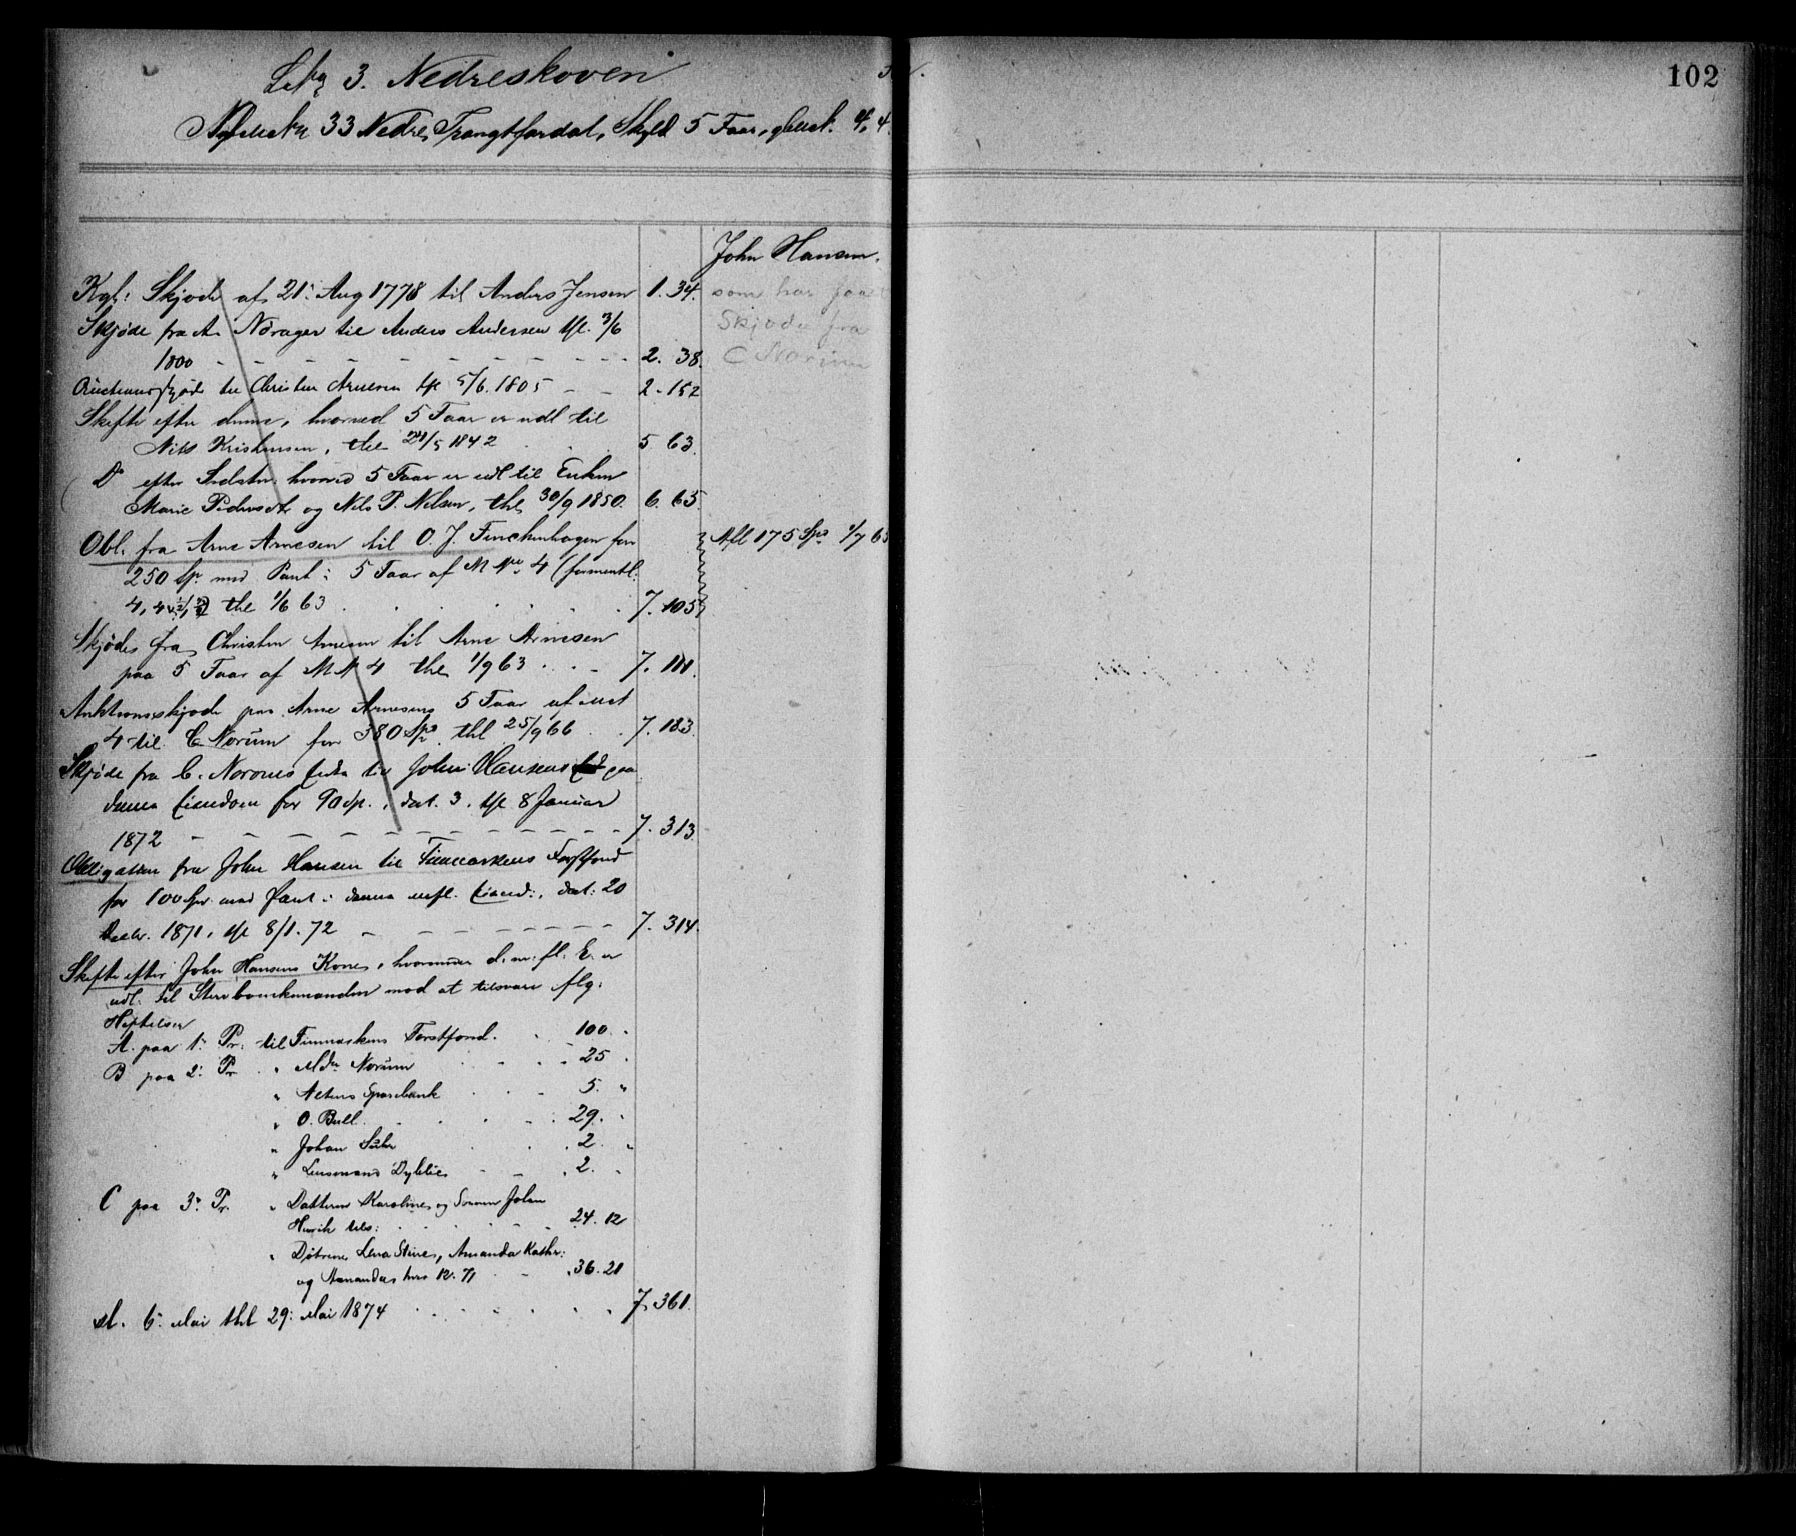 3. Nedreskoven
102
33 Nedre Skyld 5 Faar, 4, 4.
John Hansen.
Kgl: Skjøde af 21: Aug 1778 til Anders Jensen 1. 34.
som har faaet
Skjøde fra A. Norager til Anders Andersen tgl. 3/6
Skjøde fra
1800 2. 38.
C Norum
Auctionsskjøde til Christen Arnesen tgl 5/6. 1805 2 - 152
Skifte efter denne, hvorved 5 Faar er udl til
Nils Kristensen, thl 24/5 1842 5 63.
Do efter Sidstn: hvorved 5 Faar er udl til Enken
Marie Pedersdtr og Nils P. Nilsen, thl 30/9 1850. 6. 65.
Obl. fra Arne Arnesen til O. J. Finckenhagen for
Afl 175 Spd 1/7 63
250 Sp. med Pant i 5 Faar af M No 4 (formentl.
thl 1/6 63 7. 105
Skjøde fra Christen Arnesen til Arne Arnesen
paa 5 Faar af M N 4 thl 1/9 63 7. 111.
Auktionsskjøde paa Arne Arnesens 5 Faar af
4 til C Norum for 380 Spd thl 25/9 66 7. 183.
Skjøde fra C. Norums Enke til John Hansen paa
denne Eiendom for 90 Sp., dat. 3, tgl 8 Januar
1872 7. 313.
Obligation fra John Hansen til Finmarkens Forstfond
for 100 Spd. med Pant i denne Eiend:, dat: 20
Decbr. 1871, tgl 8/1. 72 7. 314.
Skifte efter John Hansens Kone, hvorunder d. m: fl: E. er
udl. til Stervboenkemanden mod at tilsvare flg:
Heftelser
A. paa 1: Pr: til Finmarkens Forstfond. 100.
B paa 2: Pr " Norum 25
" Altens Sparebank 5. "
" O. Bull 29.
" Johan 2. "
" Lensmand 2.
C paa 3: Pr. " Datteren Karoline og Sønnen Johan
Henrik tils: 24. 12
" Døtrene Lena Stine, Amanda Kathr:
og hver 12. 7/ 36. 21
6: Mai thl 29: Mai 1874 7. 361.